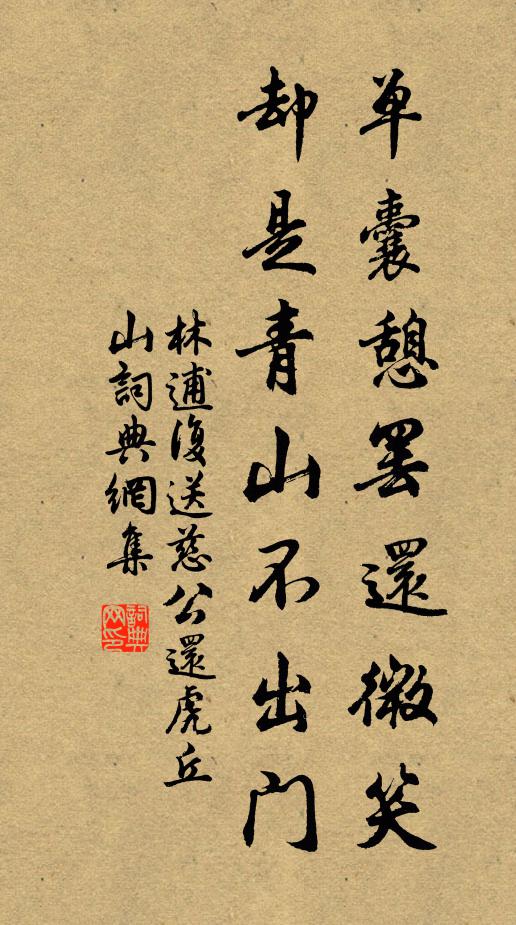 单囊憩罢還微笑
却是青山不出門
林逋復送慈公還虎丘
山詞典網集
詞典
网印